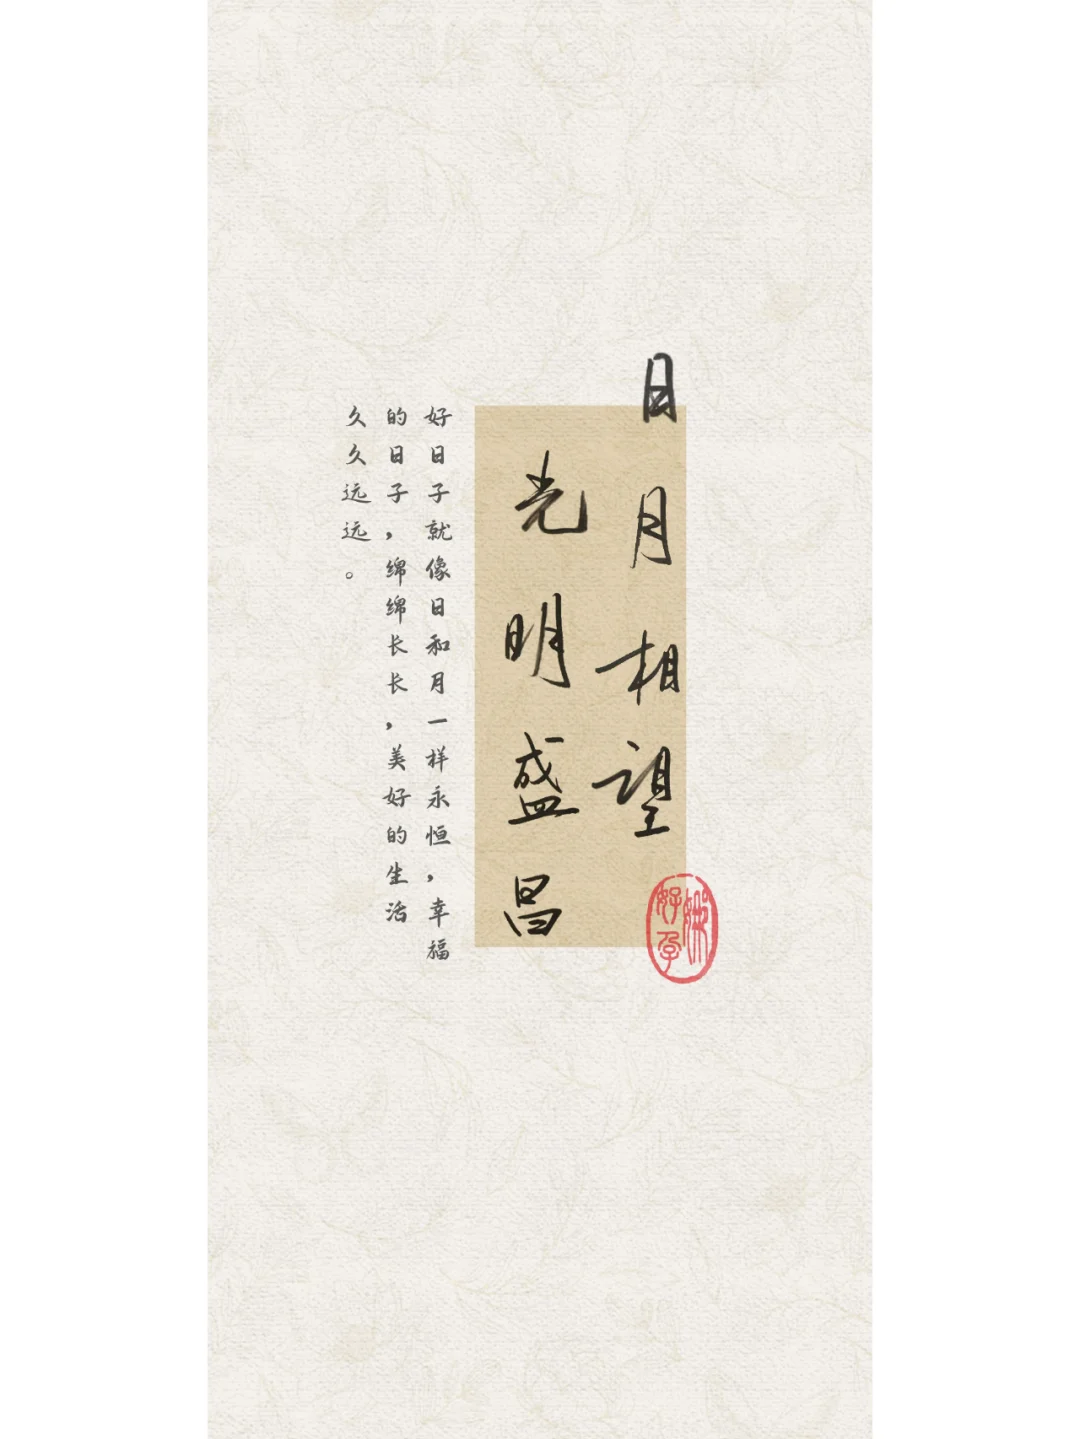 日月相望
光明盛昌
好日子就像日和月一样永恒，幸福
的日子，绵绵长长，美好的生活
久久远远。
好孕